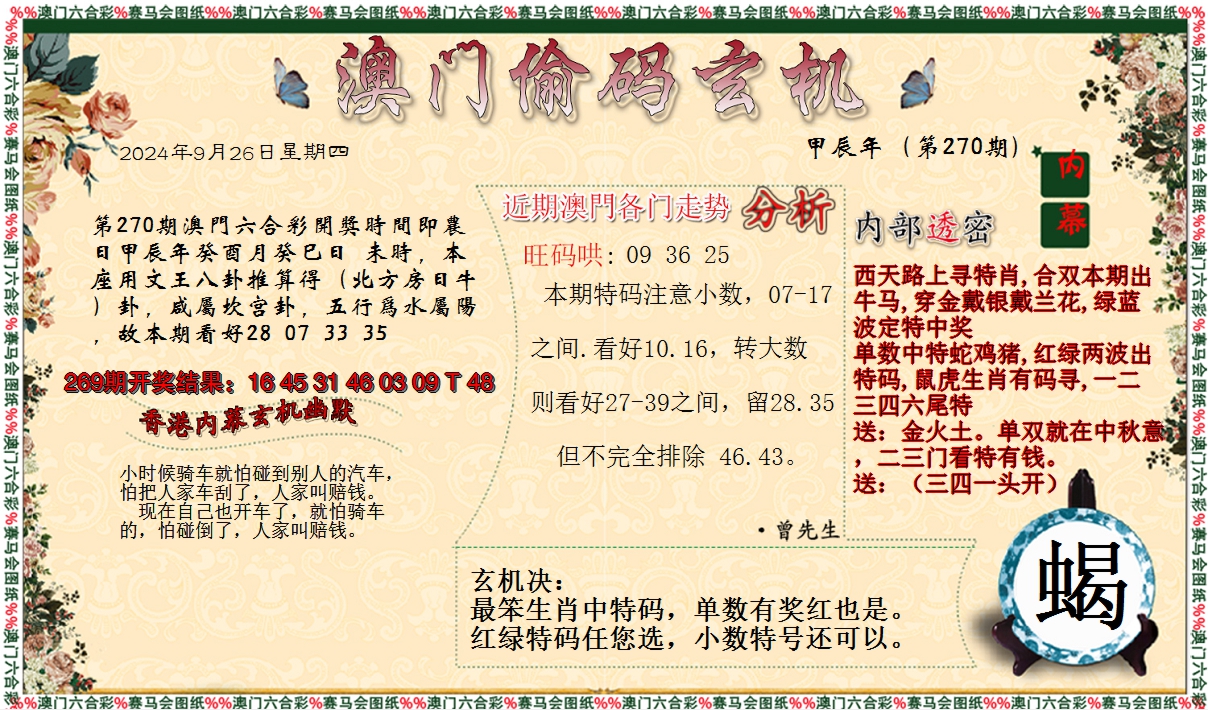 %%澳门六合彩%赛马会图纸%%澳门六合彩%赛马会图纸%%澳门六合彩%赛马会图纸%%澳门六合彩%赛马会图纸%%澳门六合彩%赛马会图纸%%澳门六合彩%赛马会图纸%%
澳门偷码玄机
2024年9月26日星期四
甲辰年（第270期）
内
幕
第270期澳門六合彩開獎時間即農
日甲辰年癸酉月癸巳日 未時，本
座用文王八卦推算得（北方房日牛
）卦，咸屬坎宫卦，五行爲水屬陽
，故本期看好28 07 33 35
269期开奖结果：16 45 31 46 03 09 T 48
香港内幕玄机幽默
小时候骑车就怕碰到别人的汽车，
怕把人家车刮了，人家叫赔钱。
现在自己也开车了，就怕骑车
的，怕碰倒了，人家叫赔钱。
近期澳門各门走势 分析
旺码哄: 09 36 25
本期特码注意小数，07-17
之间.看好10.16，转大数
则看好27-39之间，留28.35
但不完全排除 46.43。
·曾先生
内部透密
西天路上寻特肖,合双本期出
牛马,穿金戴银戴兰花,绿蓝
波定特中奖
单数中特蛇鸡猪,红绿两波出
特码,鼠虎生肖有码寻,一二
三四六尾特
送：金火土。单双就在中秋意
，二三门看特有钱。
送：（三四一头开）
玄机决：
最笨生肖中特码，单数有奖红也是。
红绿特码任您选，小数特号还可以。
蝎
%%澳门六合彩%赛马会图纸%%澳门六合彩%赛马会图纸%%澳门六合彩%赛马会图纸%%澳门六合彩%赛马会图纸%%澳门六合彩%赛马会图纸%%澳门六合彩%赛马会图纸%%